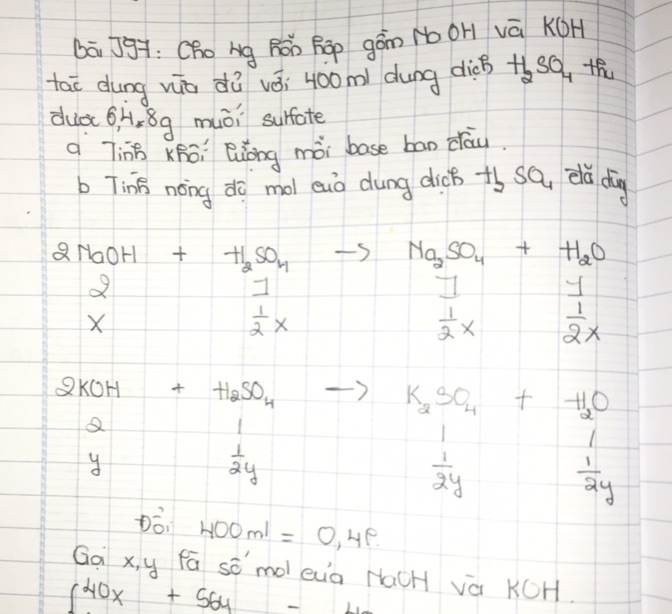 Bài 197: Cho 4g hỗn hợp gồm NaOH và KOH
tác dụng vừa đủ với 400ml dung dịch H₂SO₄ thu
được 6,48g muối sulfate
a Tính khối lượng mỗi base ban đầu.
b Tính nồng độ mol của dung dịch H₂SO₄ đã dùng
2NaOH + H₂SO₄ –> Na₂SO₄ + H₂O
2 1 1 1
x 1/2x 1/2x 1/2x
2KOH + H₂SO₄ –> K₂SO₄ + H₂O
2 1 1 1
y 1/2y 1/2y 1/2y
Đổi 400ml = 0,4l.
Gọi x,y là số mol của NaOH và KOH.
{40x + 56y =